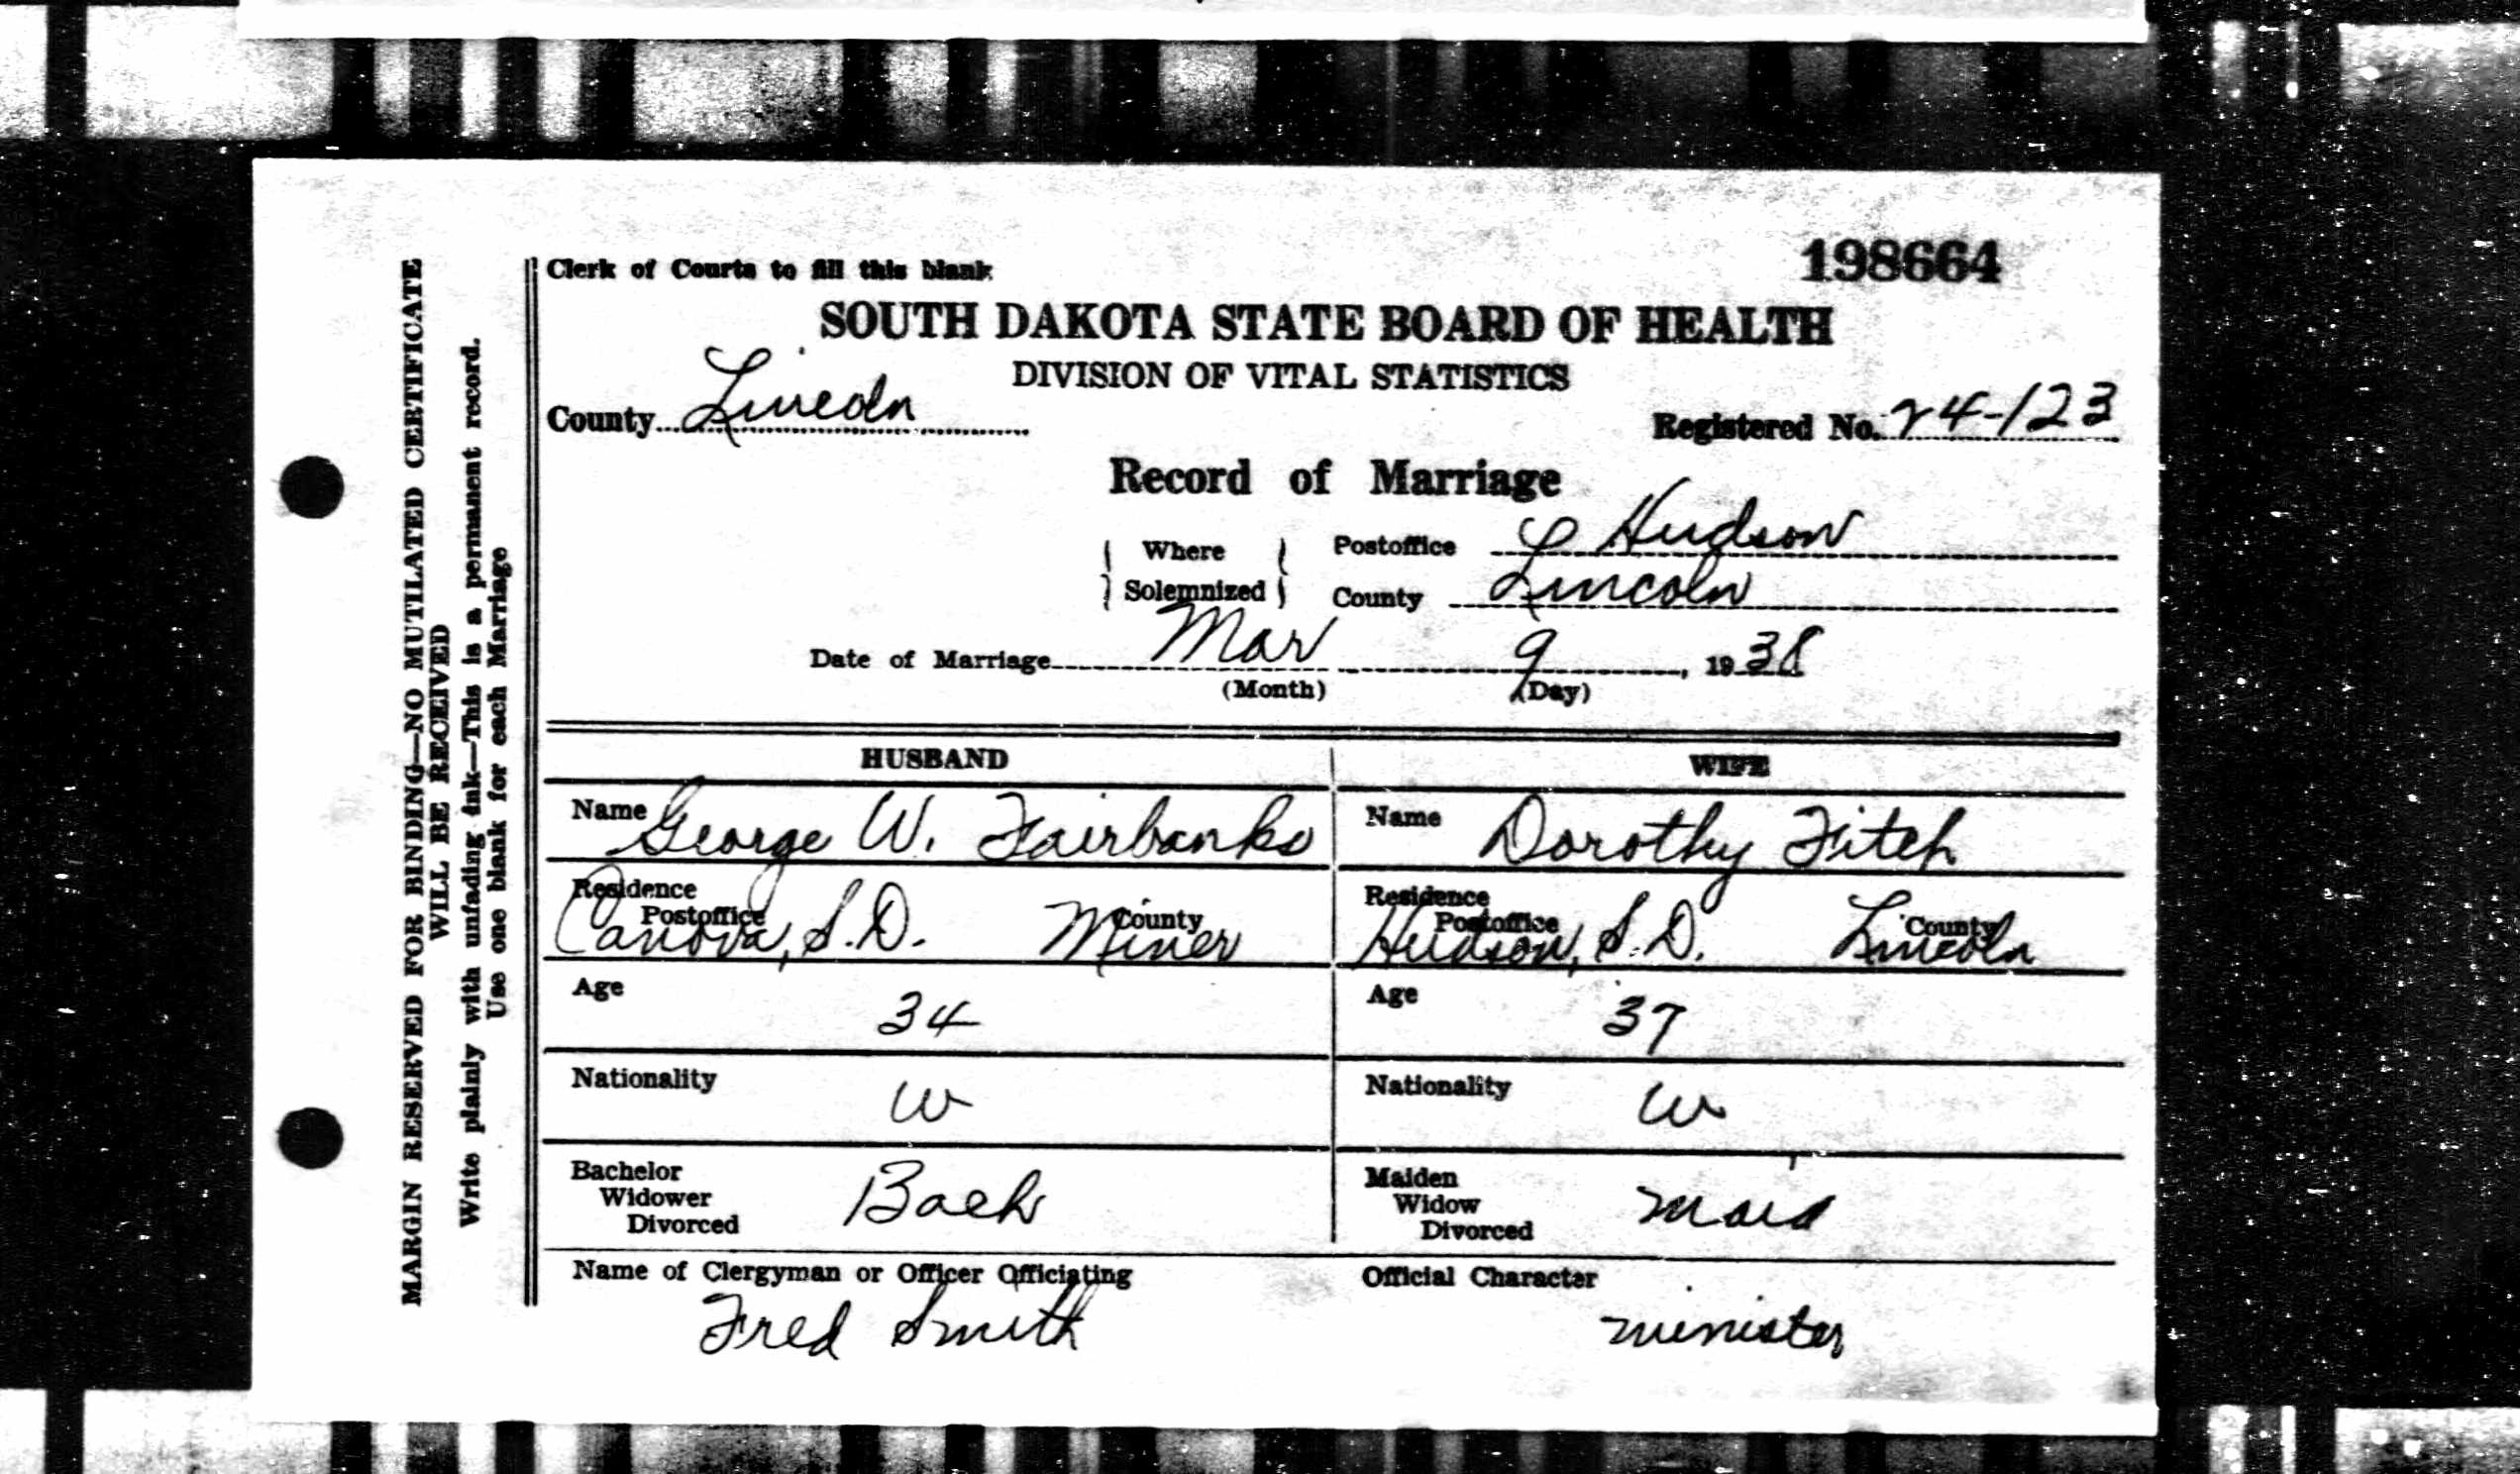 Clerk of Courts to fill this blank
198664
SOUTH DAKOTA STATE BOARD OF HEALTH
DIVISION OF VITAL STATISTICS
County Lincoln
Registered No. 24-123
Record of Marriage
Where Solemnized
Postoffice Hudson
County Lincoln
Date of Marriage Mar 9, 1938
(Month) (Day)
HUSBAND
WIFE
Name George W. Fairbanks
Name Dorothy Fitch
Residence
Postoffice County
Canova, S.D. Miner
Residence
Postoffice County
Hudson, S.D. Lincoln
Age 34
Age 37
Nationality W
Nationality W
Bachelor
Widower
Divorced
Bach
Maiden
Widow
Divorced
Maid
Name of Clergyman or Officer Officiating
Fred Smith
Official Character
minister
MARGIN RESERVED FOR BINDING—NO MUTILATED CERTIFICATE
WILL BE RECEIVED
Write plainly with unfading ink—This is a permanent record.
Use one blank for each Marriage